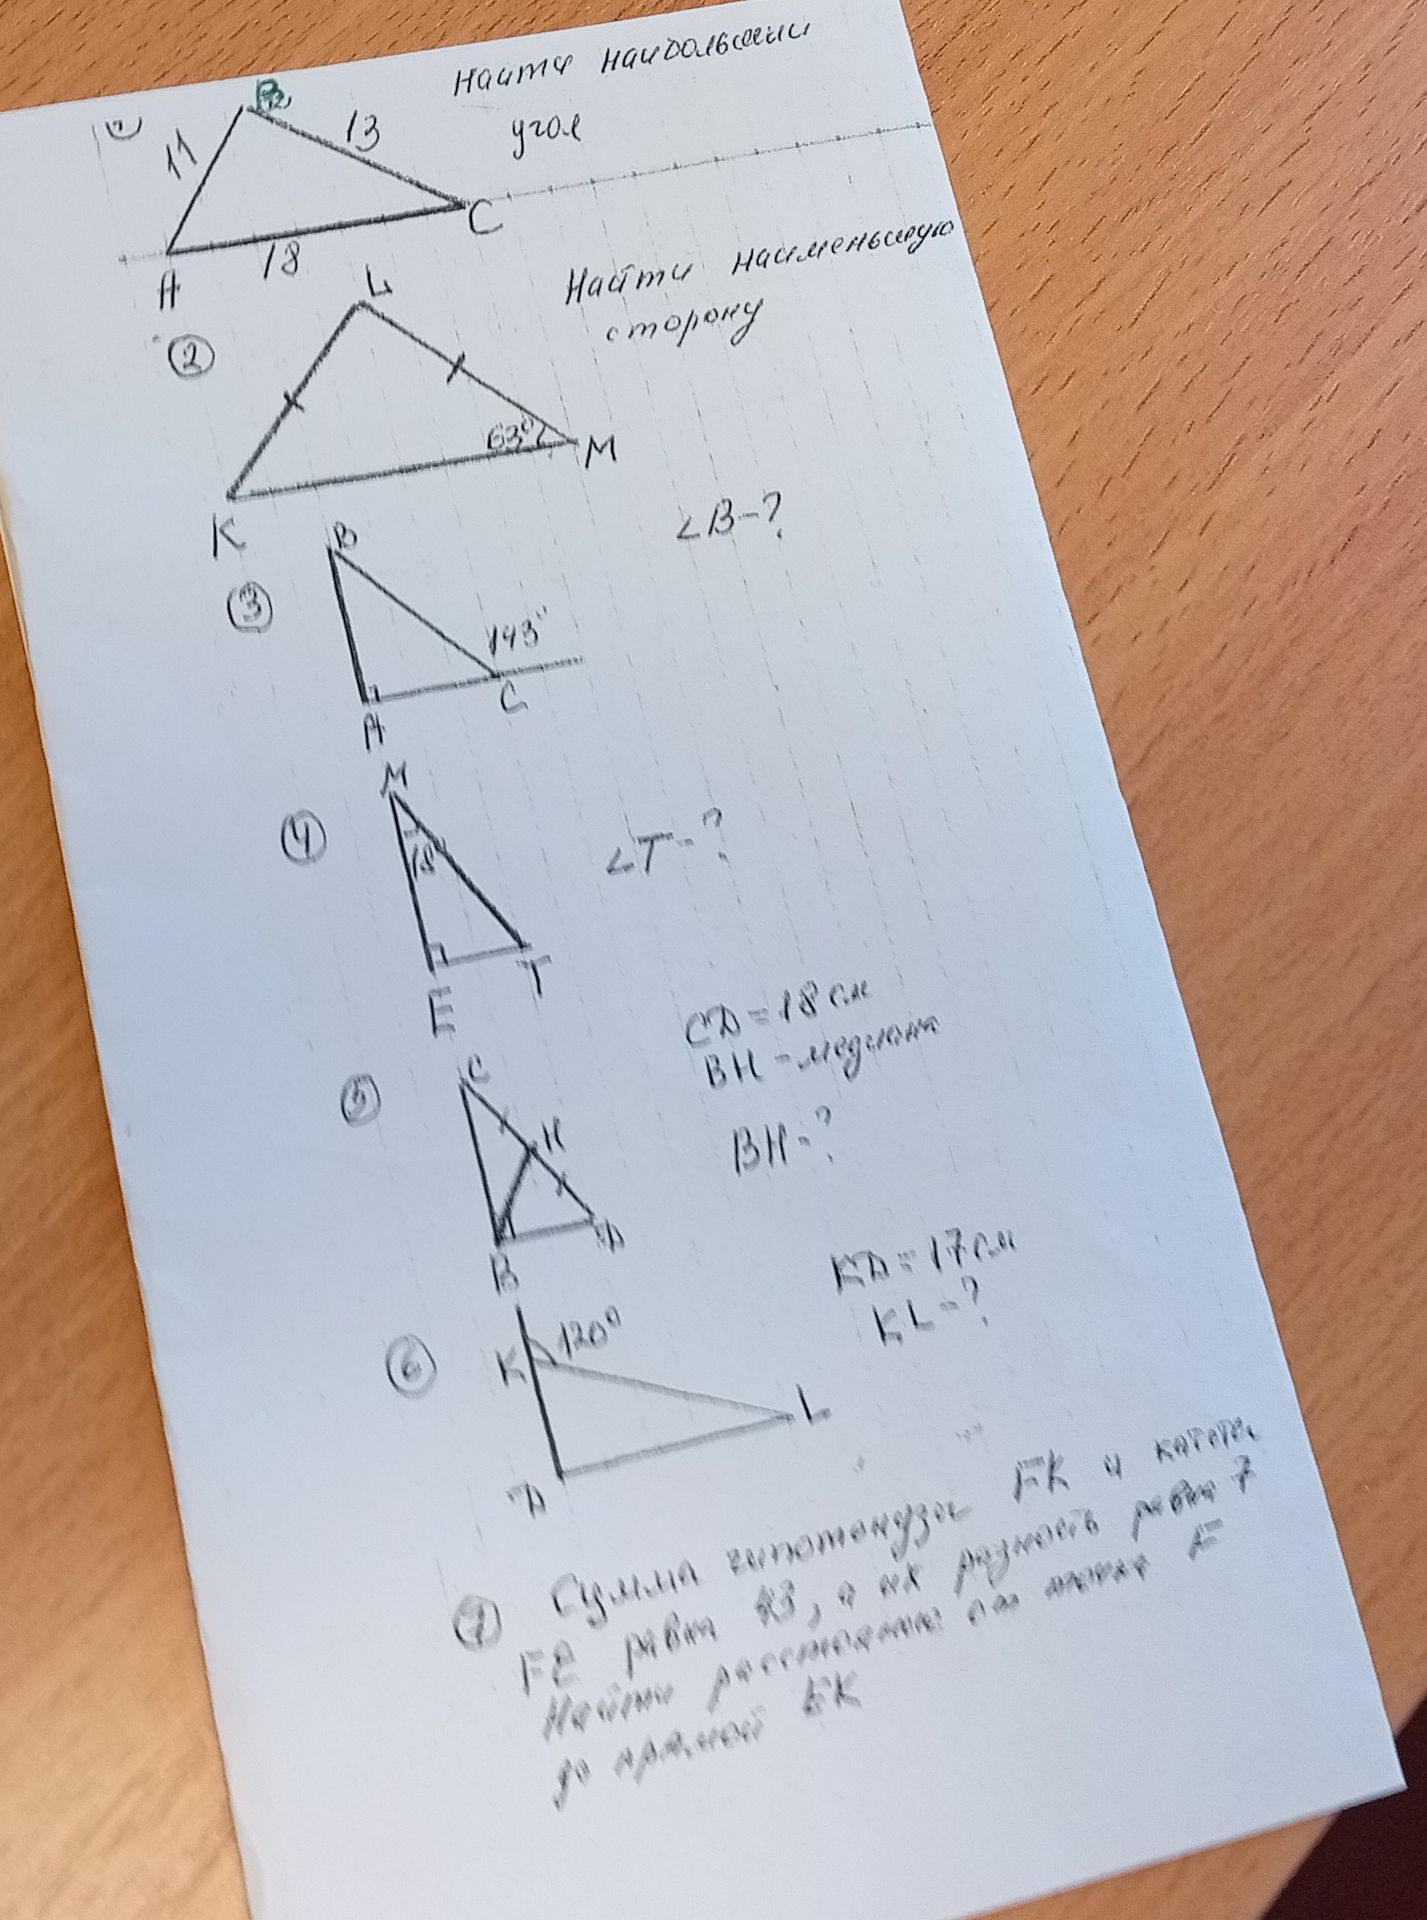 1
B
Найти наибольший
угол
11
13
18
A
C
2
L
Найти наименьшую
сторону
63°
K
M
3
B
∠B-?
143°
A
C
4
M
∠T-?
18
E
T
5
C
CD = 18 см
BH - медиана
BH - ?
H
B
D
6
K
120°
KD = 17 см
KL - ?
L
D
7 Сумма гипотенузы FK и катета
FE равна 43, а их разность равна 7
Найти расстояние от точки F
до прямой EK